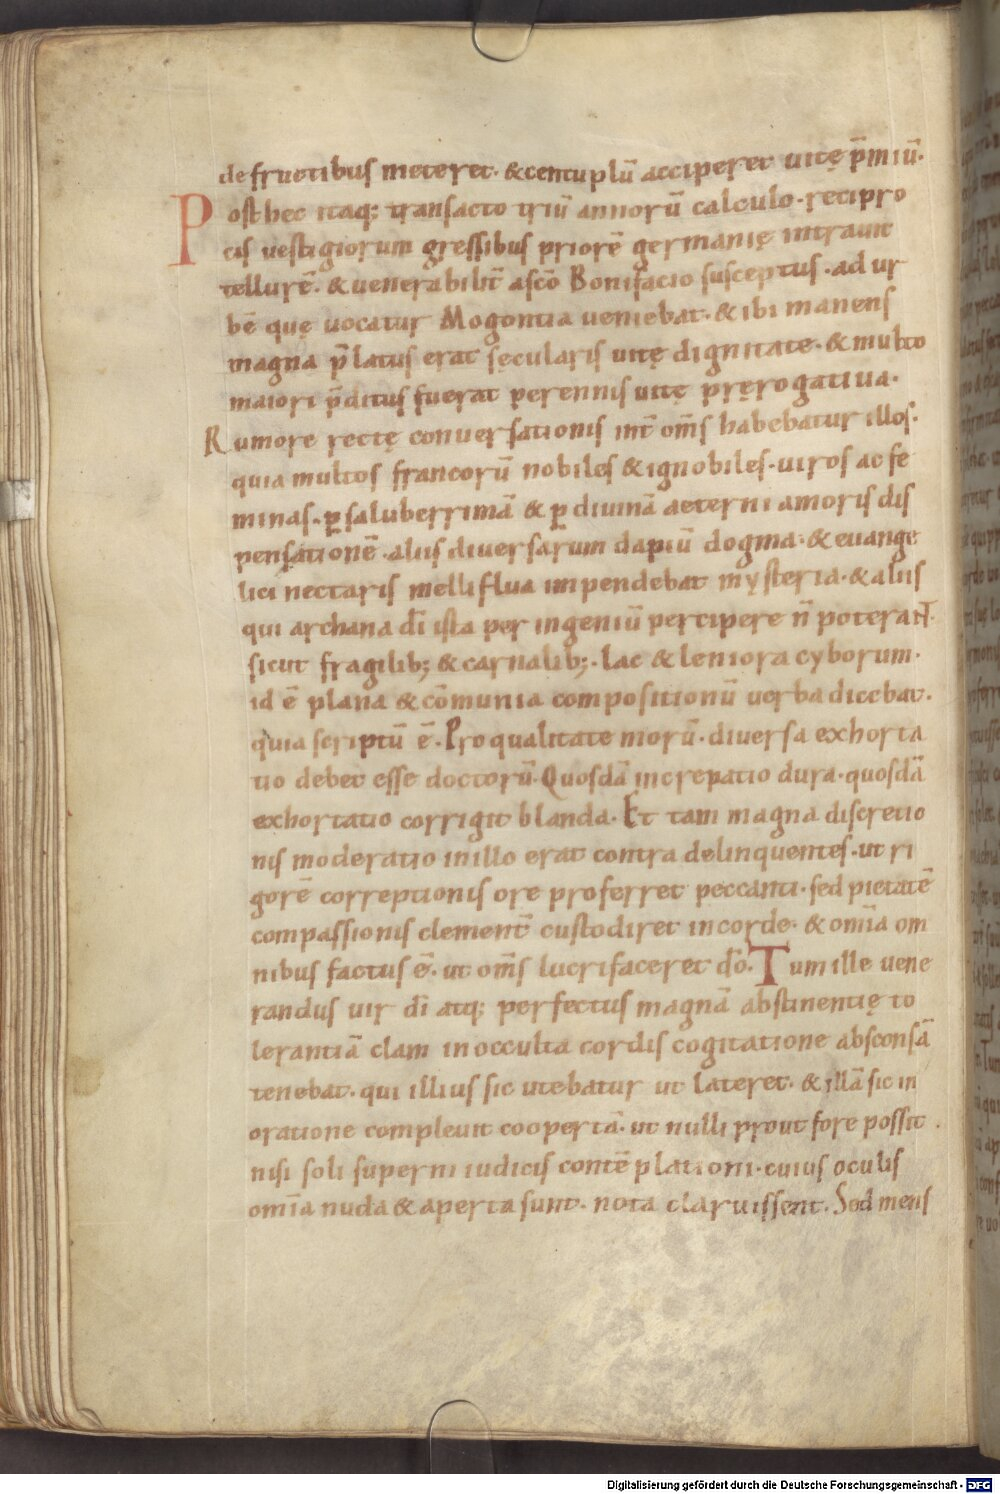 de fructibus meteret· & centuplū acciperet uitę p̄miū·
Post hec itaq; transacto triū annorū calculo· recipro
cis uestigiorum gressibus priorē germanię intrauit
tellurē· & uenerabilit̄ a sc̄o Bonifacio susceptus· ad ur
bē quę uocatur Mogontia ueniebat· & ibi manens
magna p̄latus erat sęcularis uitę dignitate· & multo
maiori p̄ditus fuerat perennis uitę pręrogatiua·
Rumore rectę conuersationis int̄ om̄s habebatur illos·
quia multos francorū nobiles & ignobiles· uiros ac fe
minas· ꝑ saluberrimā & ꝑ diuinā aeterni amoris dis
pensationē· aliis diuersarum dapiū dogma· & euange
lici nectaris melliflua impendebat mysteria· & aliis
qui archana dī ista per ingeniū percipere n̄ poterant·
sicut fragilib; & carnalib;· lac & leniora cyborum·
id ē plana & cōmunia compositionū uerba dicebat·
quia scriptū ē· Pro qualitate morū· diuersa exhorta
tio debet esse doctorū· Quosdā increpatio dura· quosdā
exhortatio corrigit blanda· Et tam magna discretio
nis moderatio in illo erat contra delinquentes· ut ri
gorē correptionis ore proferret peccanti· sed pietatē
compassionis clement̄ custodiret in corde· & om̄ia om
nibus factus ē· ut om̄s lucrifaceret dō· Tum ille uene
randus uir dī atq; perfectus magnā abstinentię to
lerantiā clam in occulta cordis cogitatione absconsā
tenebat· qui illius sic utebatur ut lateret· & illā sic in
oratione compleuit coopertā· ut nulli prout fore possit·
nisi soli superni iudicis contēplationi· cuius oculis
om̄ia nuda & aperta sunt· nota claruissent· Sed mens
Digitalisierung gefördert durch die Deutsche Forschungsgemeinschaft - DFG